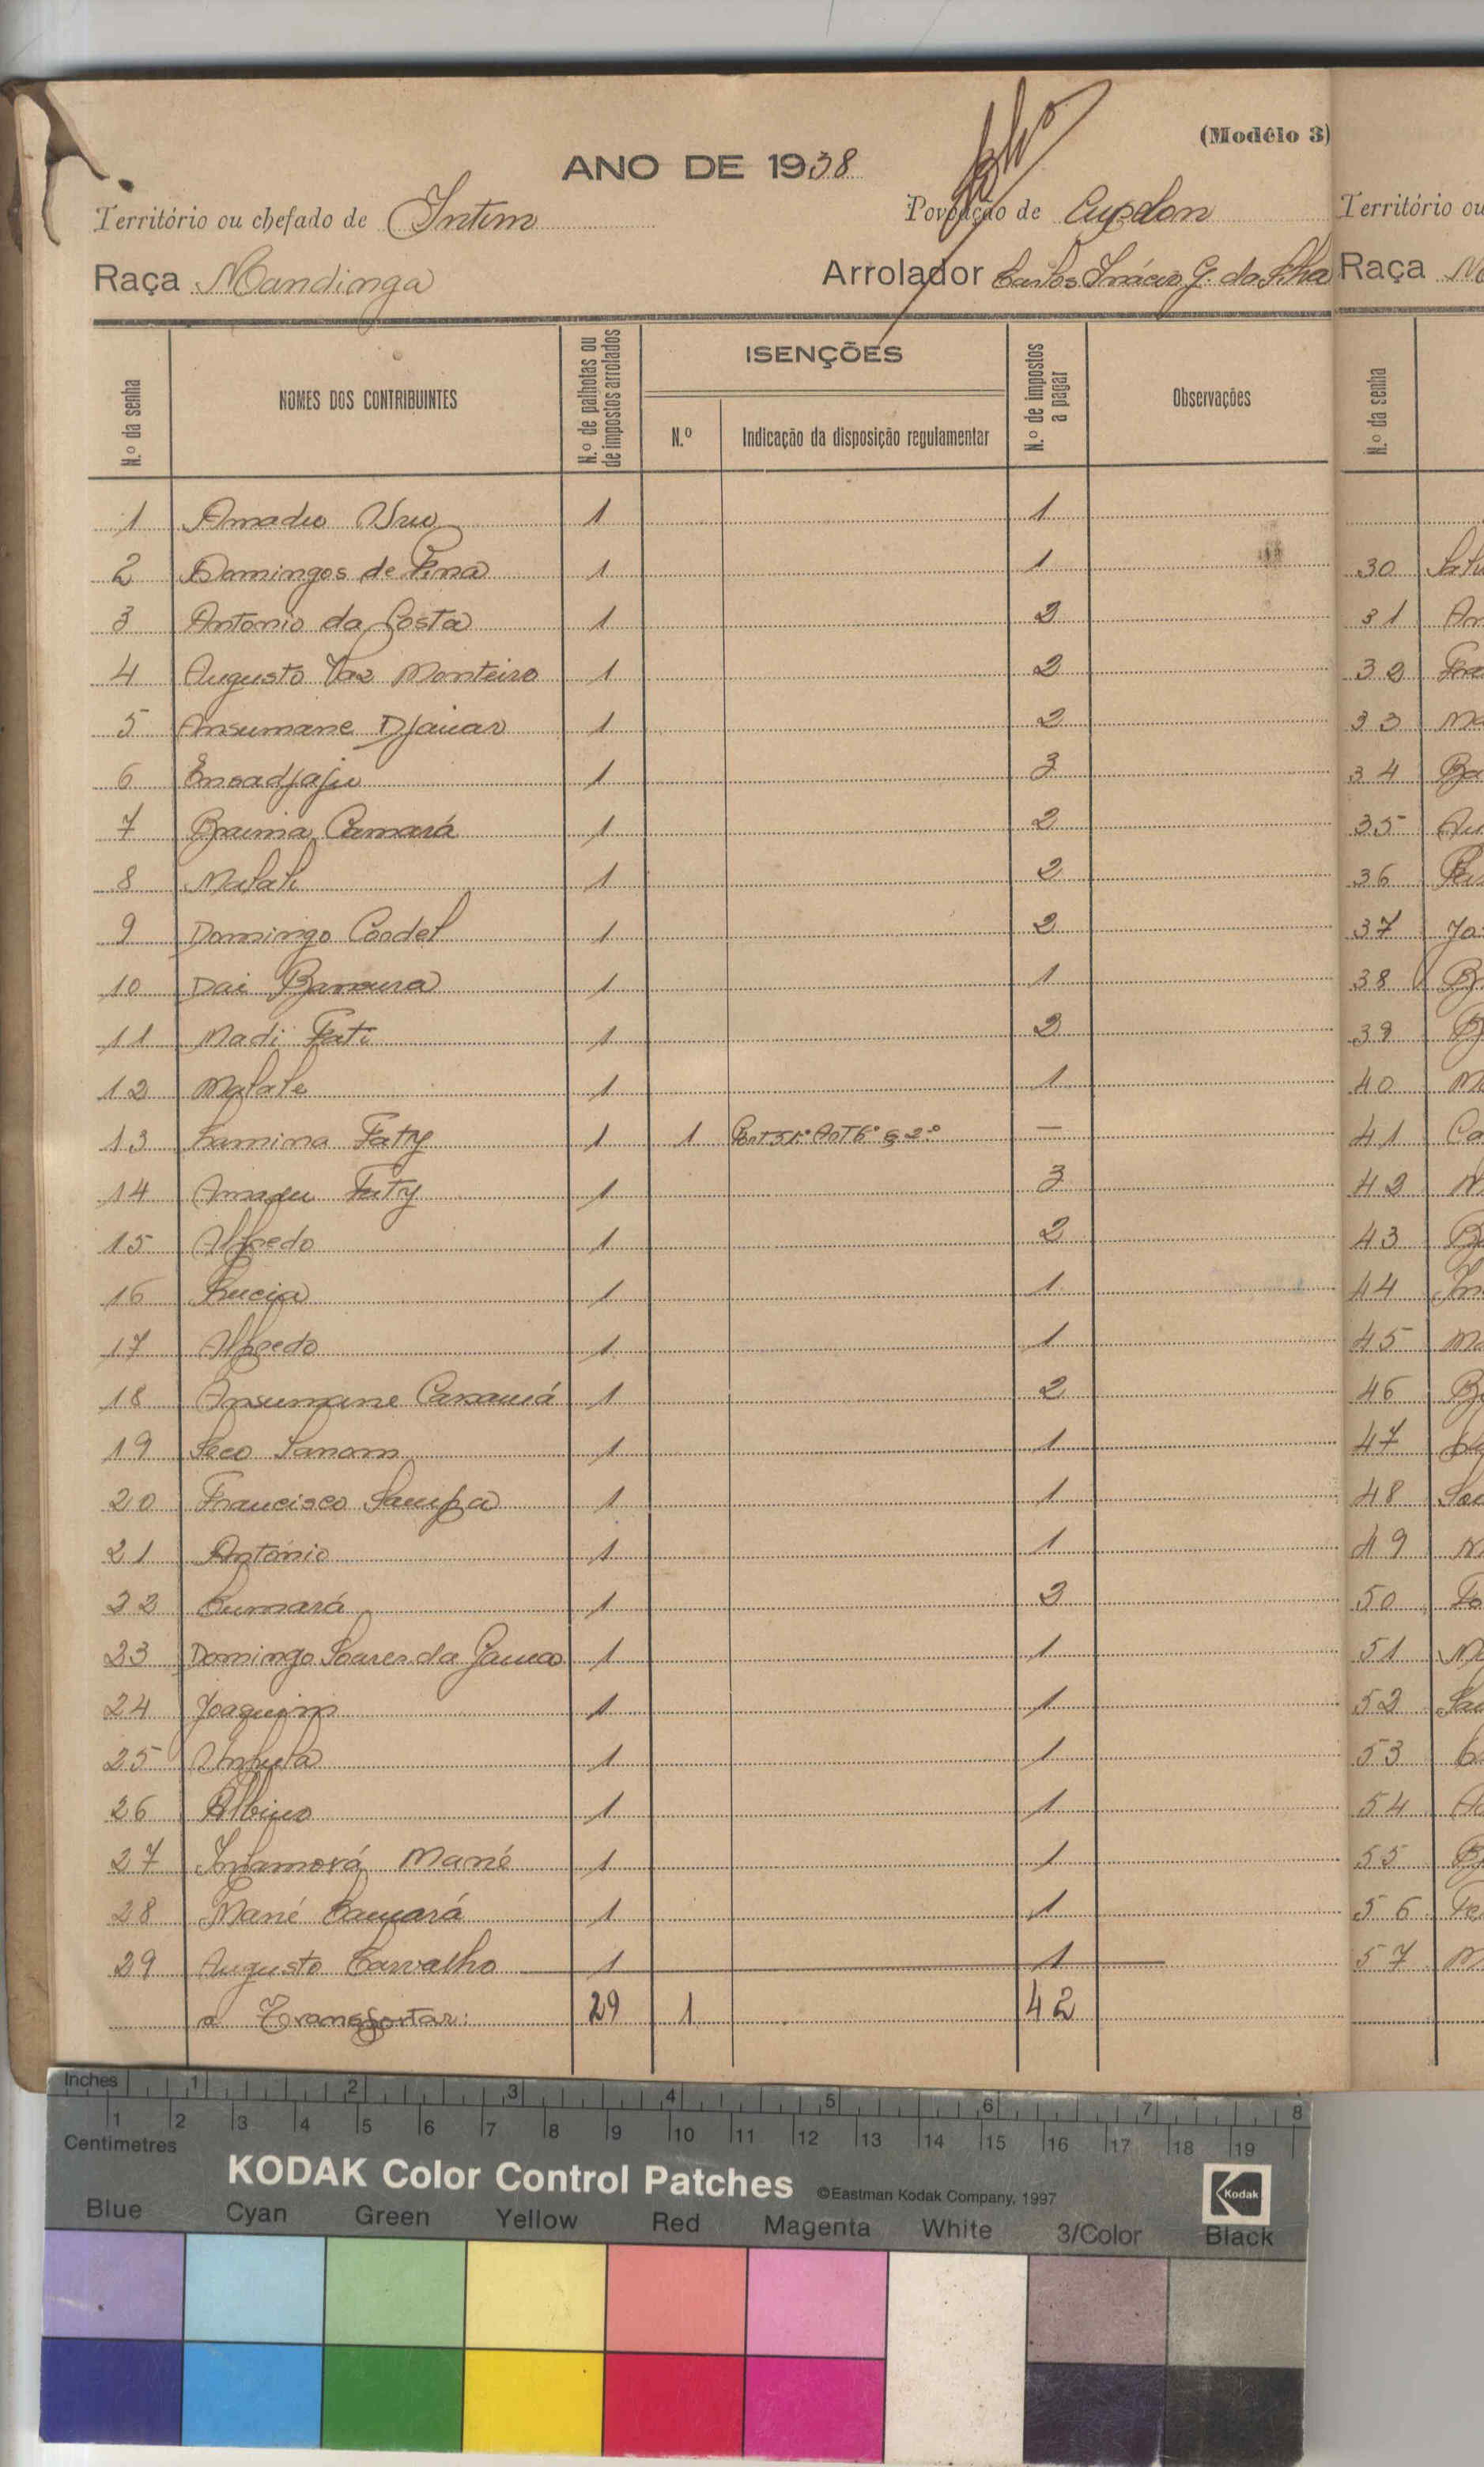 (Modêlo 3)
ANO DE 1938
Território ou chefado de Intim Povoação de
Raça Mandinga Arrolador Carlos Inácio G. da Silva
N.º da senha
NOMES DOS CONTRIBUINTES
N.º de palhotas ou de impostos arrolados
ISENÇÕES
N.º
Indicação da disposição regulamentar
N.º de impostos a pagar
Observações
1 Amadu 1 1
2 Domingos de Pina 1 1
3 Antonio da Costa 1 2
4 Augusto Vaz Monteiro 1 2
5 Ansumane Djauar 1 2
6 1 3
7 Braima Camará 1 2
8 Malali 1 2
9 Domingo 1 2
10 Dai 1 1
11 Madi Fati 1 2
12 Malale 1 1
13 Lamina Faty 1 1 Art 6º § 2º —
14 Amadu Faty 1 3
15 Alfredo 1 2
16 Lucia 1 1
17 Alfredo 1 1
18 Ansumane 1 2
19 Seco 1 1
20 Francisco Sampa 1 1
21 António 1 1
22 Cumará 1 2
23 Domingo Soares da Gama 1 1
24 Joaquim 1 1
25 1 1
26 Albino 1 1
27 Mané 1 1
28 Mané Camará 1 1
29 Augusto Carvalho 1 1
a Transportar: 29 1 42
Território ou
Raça
N.º da senha
30
31
32
33
34
35
36
37
38
39
40
41
42
43
44
45
46
47
48
49
50
51
52
53
54
55
56
57
Inches 1 2 3 4 5 6 7 8
1 2 3 4 5 6 7 8 9 10 11 12 13 14 15 16 17 18 19
Centimetres
KODAK Color Control Patches ©Eastman Kodak Company, 1997 Kodak
Blue Cyan Green Yellow Red Magenta White 3/Color Black